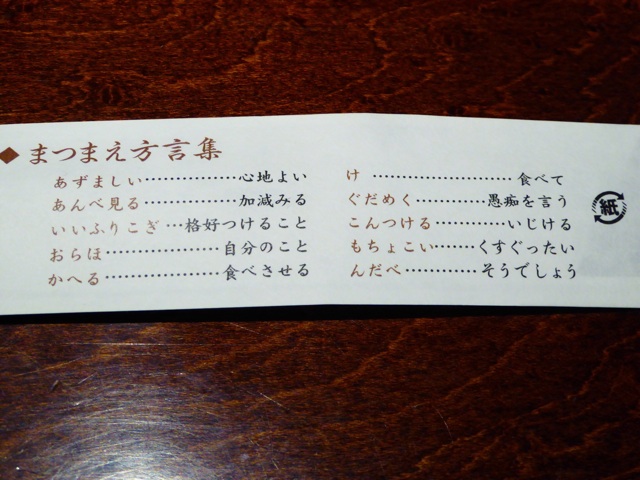 ◆まつまえ方言集
あずましい………………心地よい
あんべ見る………………加減みる
いいふりこぎ…格好つけること
おらほ…………………自分のこと
かへる…………………食べさせる
け………………………食べて
ぐだめく…………愚痴を言う
こんつける…………いじける
もちょこい……くすぐったい
んだべ…………そうでしょう
紙